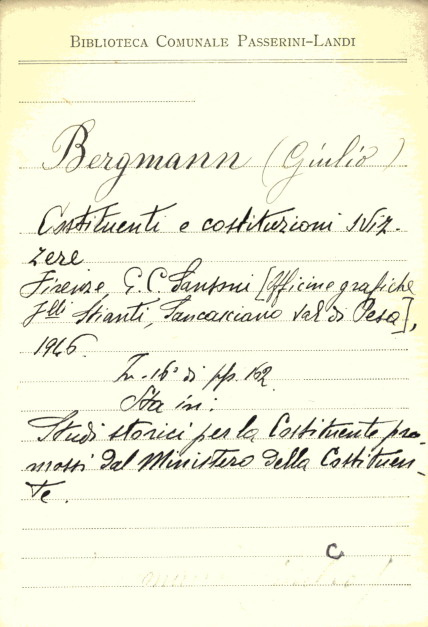 BIBLIOTECA COMUNALE PASSERINI-LANDI
Bergmann (Giulio)
Costituenti e costituzioni sviz-
zere
Firenze, G. C. Sansoni [Officine grafiche
f.lli Stianti, Sancasciano Val di Pesa],
1946.
In-16° di pp. 162
Sta in:
Studi storici per la Costituente pro-
mossi dal Ministero della Costituen-
te.
C